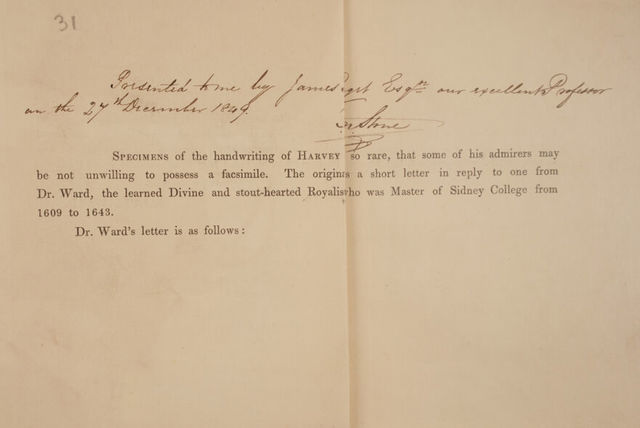 31
Presented to me by James Paget Esqre our excellent Professor
on the 27th December 1849.
Stone
SPECIMENS of the handwriting of HARVEY so rare, that some of his admirers may
be not unwilling to possess a facsimile. The origina a short letter in reply to one from
Dr. Ward, the learned Divine and stout-hearted Royalis ho was Master of Sidney College from
1609 to 1643.
Dr. Ward's letter is as follows: